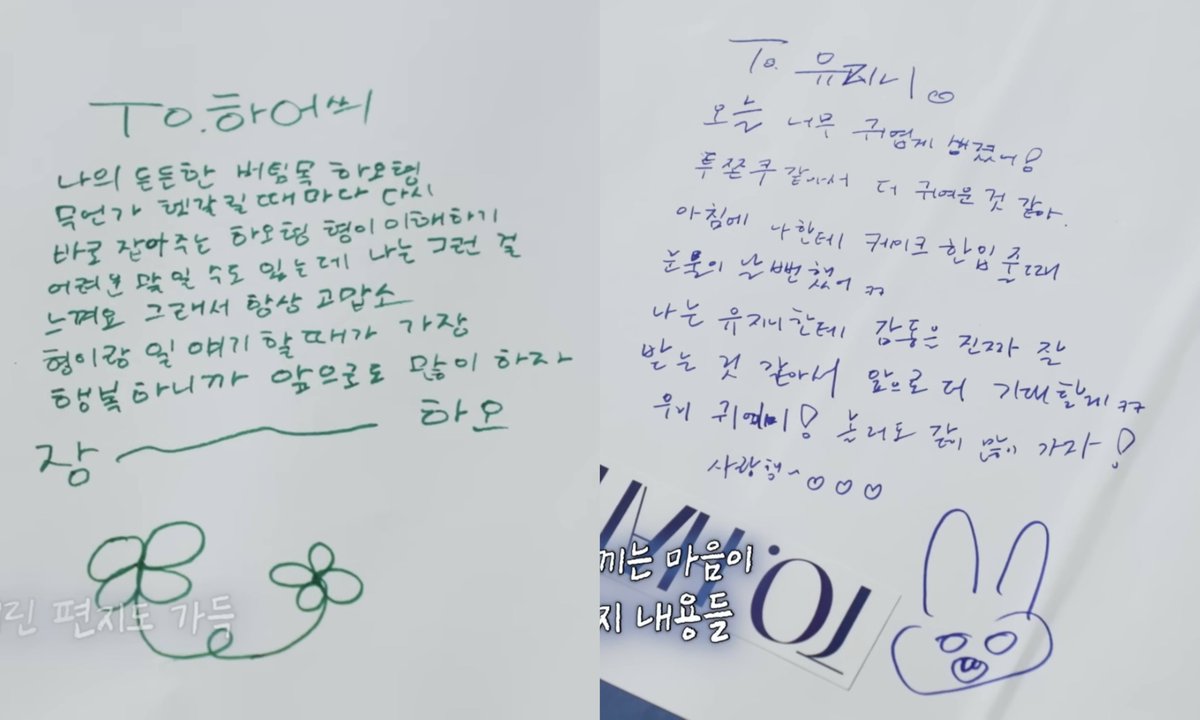 To. 하어씌
나의 든든한 버팀목 하오형
무언가 헷갈릴때마다 다시
바로 잡아주는 하오형 형이 이해하기
어려운 말일 수도 있는데 나는 그런 걸
느껴요 그래서 항상 고맙소
형이랑 일 얘기 할때가 가장
행복하니까 앞으로도 많이 하자
장 하오
린 편지도 가득
To. 유지니
오늘 너무 귀엽게 생겼너!
투쫀쿠 같아서 더 귀여운 것 같아.
아침에 나한테 케이크 한입 줄때
눈물이 날뻔했어 ㅋㅋ
나는 유지니한테 감동은 진짜 잘
받는 것 같아서 앞으로 더 기대할게 ㅋㅋ
우리 귀여미! 놀러도 같이 많이 가자!
사랑해~
끼는 마음이
지 내용들